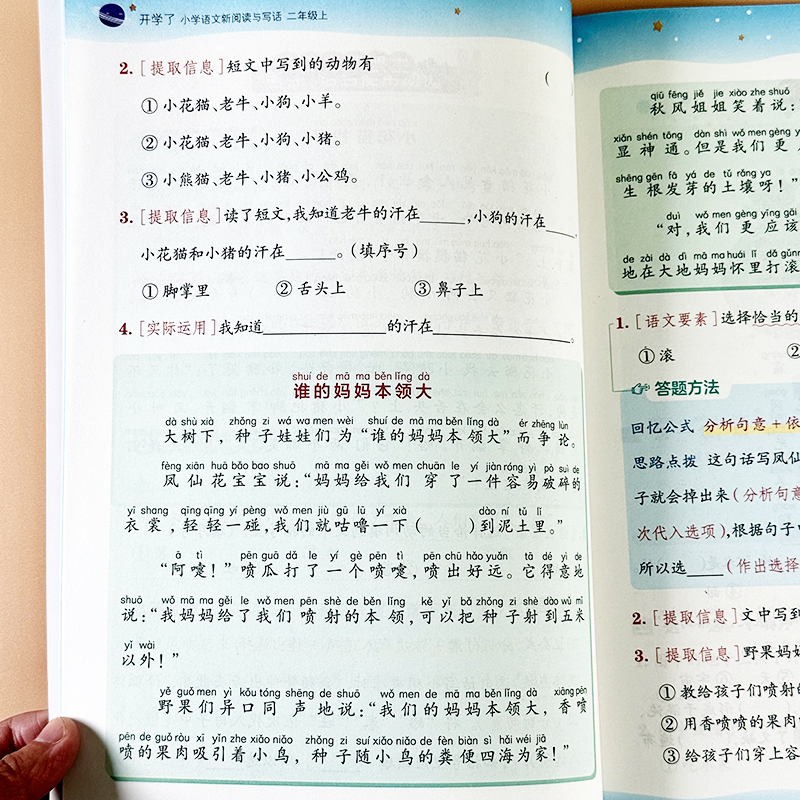 开学了 小学语文新阅读与写话 二年级上
2. [提取信息]短文中写到的动物有 (
①小花猫、老牛、小狗、小羊。
②小花猫、老牛、小狗、小猪。
③小熊猫、老牛、小猪、小公鸡。
3. [提取信息]读了短文,我知道老牛的汗在_____,小狗的汗在____,
小花猫和小猪的汗在_____。(填序号)
①脚掌里 ②舌头上 ③鼻子上
4. [实际运用]我知道______________的汗在________________。
shuí de mā ma běn lǐng dà
谁的妈妈本领大
dà shù xià zhǒng zi wá wa men wèi shuí de mā ma běn lǐng dà ér zhēng lùn
大树下,种子娃娃们为“谁的妈妈本领大”而争论。
fèng xiān huā bǎo bao shuō mā ma gěi wǒ men chuān le yí jiàn róng yì pò suì de
凤仙花宝宝说:“妈妈给我们穿了一件容易破碎的
yī shang qīng qīng yí pèng wǒ men jiù gū lū yí xià dào ní tǔ lǐ
衣裳,轻轻一碰,我们就咕噜一下( )到泥土里。”
ā tì pēn guā dǎ le yí gè pēn tì pēn chū hǎo yuǎn tā dé yì de
“阿嚏!”喷瓜打了一个喷嚏,喷出好远。它得意地
shuō wǒ mā ma gěi le wǒ men pēn shè de běn lǐng kě yǐ bǎ zhǒng zi shè dào wǔ mǐ
说:“我妈妈给了我们喷射的本领,可以把种子射到五米
yǐ wài
以外!”
yě guǒ men yì kǒu tóng shēng de shuō wǒ men de mā ma běn lǐng dà xiāng pēn
野果们异口同声地说:“我们的妈妈本领大,香喷
pēn de guǒ ròu xī yǐn zhe xiǎo niǎo zhǒng zi suí xiǎo niǎo de fèn biàn sì hǎi wéi jiā
喷的果肉吸引着小鸟,种子随小鸟的粪便四海为家!”
qiū fēng jiě jie xiào zhe shuō
秋风姐姐笑着说:
xiǎn shén tōng dàn shì wǒ men gèng y
显神通。但是我们更
shēng gēn fā yá de tǔ rǎng ya
生根发芽的土壤呀!”
duì wǒ men gèng yīng gāi
“对,我们更应该
de zài dà dì mā ma huái lǐ dǎ gǔn
地在大地妈妈怀里打滚
1. [语文要素]选择恰当的
①滚 ②
答题方法
回忆公式 分析句意+依
思路点拨 这句话写凤仙
子就会掉出来(分析句意
次代入选项),根据句子
所以选____(作出选择
2. [提取信息]文中写到
3. [提取信息]野果妈妈
①教给孩子们喷射的
②用香喷喷的果肉
③给孩子们穿上容